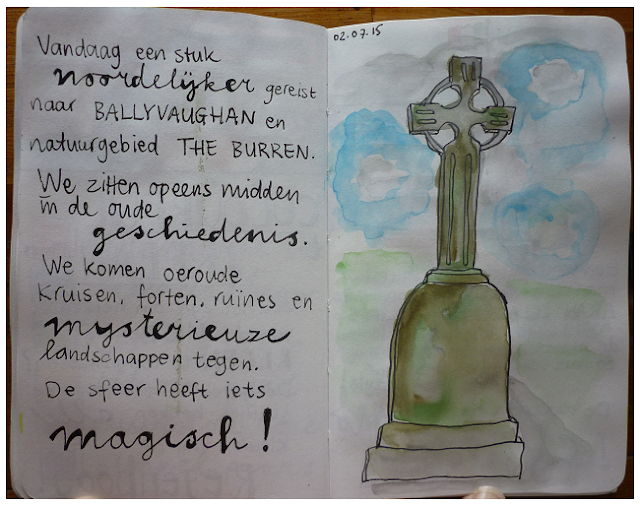 Vandaag een stuk
noordelijker gereist
naar BALLYVAUGHAN en
natuurgebied THE BURREN.
We zitten opeens midden
in de oude
geschiedenis.
We komen oeroude
kruisen, forten, ruïnes en
mysterieuze
landschappen tegen.
De sfeer heeft iets
magisch!
02.07.15